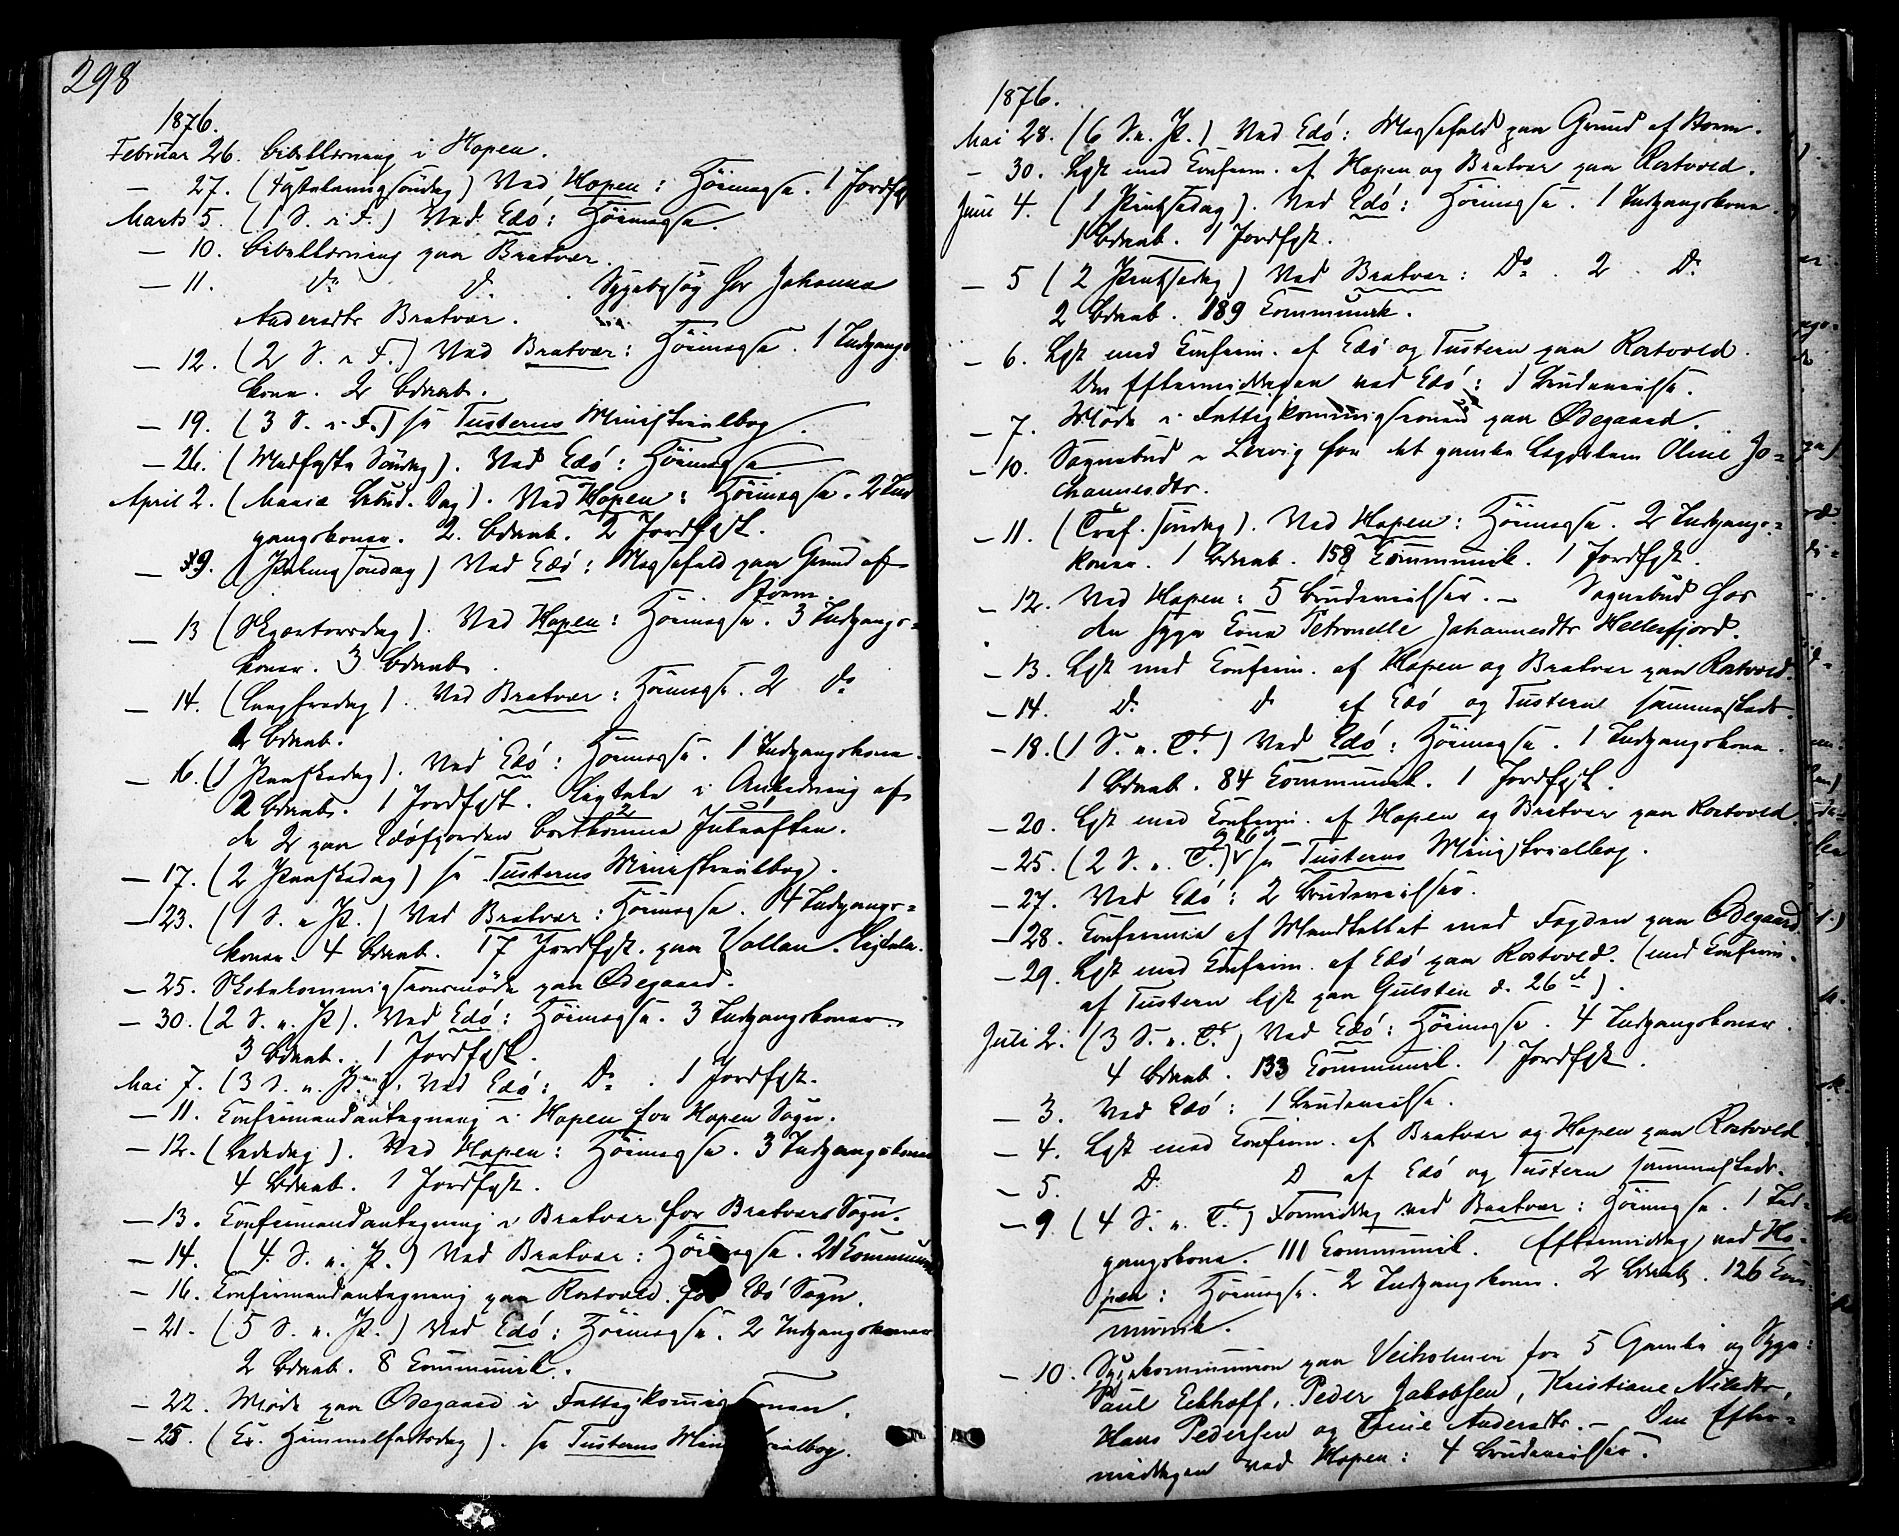 298
1876.
Februar 26. Bibellæsning i Hopen.
— 27. (Fastelavnssöndag) Ved Hopen: Höimesse. 1 Jordfæst
Marts 5. (1 S. i F.) Ved Edö: Höimesse.
— 10. Bibellæsning paa Bratvær.
— 11. Do Do. Sygebesög hos Johanna
Andersdtr Bratvær.
— 12. (2 S. i F.) Ved Bratvær: Höimesse. 1 Indgangs-
kone. 2 Börnab.
— 19. (3 S. i F.) se Tusterns Ministerialbog.
— 26. (Midfaste Söndag). Ved Edö: Höimesse.
April 2. (Mariæ Bebud. Dag). Ved Hopen: Höimesse. 2 Ind
gangskoner. 2 Börnab. 2 Jordfæst.
— 9. (Palmesöndag) Ved Edö: Messefald paa Grund af
Storm.
— 13 (Skjærtorsdag). Ved Hopen: Höimesse. 3 Indgangs-
koner. 3 Börnab.
— 14. (Langfredag). Ved Bratvær: Höimesse. 2 Do
2 Börnab.
— 16. (1 Paaskedag). Ved Edö: Höimesse. 1 Indgangskone.
2 Börnab. 1 Jordfæst. Ligtale i Anledning af
de 2 paa Edöfjorden bortkomne Juleaften.
— 17. (2 Paaskedag) se Tusterns Ministerialbog.
— 23. (1 S. e. P.) Ved Bratvær: Höimesse. 4 Indgangs-
koner. 4 Börnab. 17 Jordfæst. paa Vollan. Ligtale.
— 25. Skolekommissionsmöde paa Ödegaard.
— 30. (2 S. e. P). Ved Edö: Höimesse. 3 Indgangskoner.
3 Börnab. 1 Jordfæst.
Mai 7. (3 S. e. P.). Ved Edö: Do. 1 Jordfæst.
— 11. Konfirmandantegning i Hopen for Hopen Sogn.
— 12. (Bededag). Ved Hopen: Höimesse. 3 Indgangskoner
4 Börnab. 1 Jordfæst.
— 13. Konfirmandantegning i Bratvær for Bratværs Sogn.
— 14. (4. S. e. P.) Ved Bratvær: Höimesse. 21 Kommuni
— 16. Konfirmandantegning paa Rostvold for Edö Sogn.
— 21. (5 S. e. P.) Ved Edö: Höimesse. 2 Indgangskoner
2 Börnab. 8 Kommunik.
— 22. Möde paa Ödegaard i Fattigkommissionen.
— 25. (Kr. Himmelfartsdag). se Tusterns Ministerialbog.
1876.
Mai 28. (6 S. e. P.) Ved Edö: Messefald paa Grund af Storm.
— 30. Læst med Konfirm. af Hopen og Bratvær paa Rostvold.
Juni 4. (1 Pintsedag). Ved Edö: Höimesse. 1 Indgangskone.
1 Börnab. 1 Jordfæst.
— 5 (2 Pintsedag) Ved Bratvær: Do. 2 Do
2 Börnab. 189 Kommunik.
— 6. Læst med Konfirm. af Edö og Tustern paa Rostvold.
Om Eftermiddagen ved Edö: 1 Brudevielse.
— 7. Möde i Fattigkommissionen paa Ödegaard.
— 10. Sognebud i Lervig for det gamle Lægdslem Oline Jo-
hannesdtr.
— 11. (Tref. Söndag). Ved Hopen: Höimesse. 2 Indgangs-
koner. 1 Börnab. 158 Kommunik. 1 Jordfæst.
— 12. Ved Hopen: 5 Brudevielser. — Sognebud hos
den syge Kone Petronelle Johannesdtr Hellesfjord.
— 13. Læst med Konfirm. af Hopen og Bratvær paa Rostvold.
— 14. Do Do af Edö og Tustern sammesteds.
— 18. (1 S. e. Tr.) Ved Edö: Höimesse. 1 Indgangskone.
1 Börnab. 84 Kommunik. 1 Jordfæst.
— 20. Læst med Konfirm. af Hopen og Bratvær paa Rostvold.
— 25. (2 S. e. T.) og 26de se Tusterns Ministerialbog.
— 27. Ved Edö: 2 Brudevielser.
— 28. Conference af Mandtallet med Fogden paa Ödegaard.
— 29. Læst med Konfirm. af Edö paa Rostvold. (med Konfirm.
af Tustern læst paa Gulstein d. 26de).
Juli 2. (3 S. e. Tr.) Ved Edö: Höimesse. 4 Indgangskoner.
4 Börnab. 133 Kommunik. 1 Jordfæst.
— 3. Ved Edö: 1 Brudevielse.
— 4. Læst med Konfirm. af Bratvær og Hopen paa Rostvold.
— 5. D D af Edö og Tustern sammesteds.
— 9 (4 S. e. T.) Formiddag ved Bratvær: Höimesse. 1 Ind-
gangskone. 111 Kommunik. Eftermiddag ved Ho-
pen: Höimesse. 2 Indgangskoner. 2 Börnab. 126 Kom-
munik.
— 10. Sygekommunion paa Veiholmen for 5 Gamle og Syge:
Paul Ebhoff, Peder Jakobsen, Kristiane Nilsdtr,
Hans Pedersen og Trine Andersdtr. — Om Efter-
middagen ved Hopen: 4 Brudevielser.